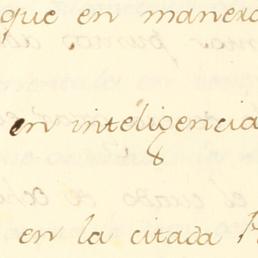 que en manera
en inteligencia
8
en la citada